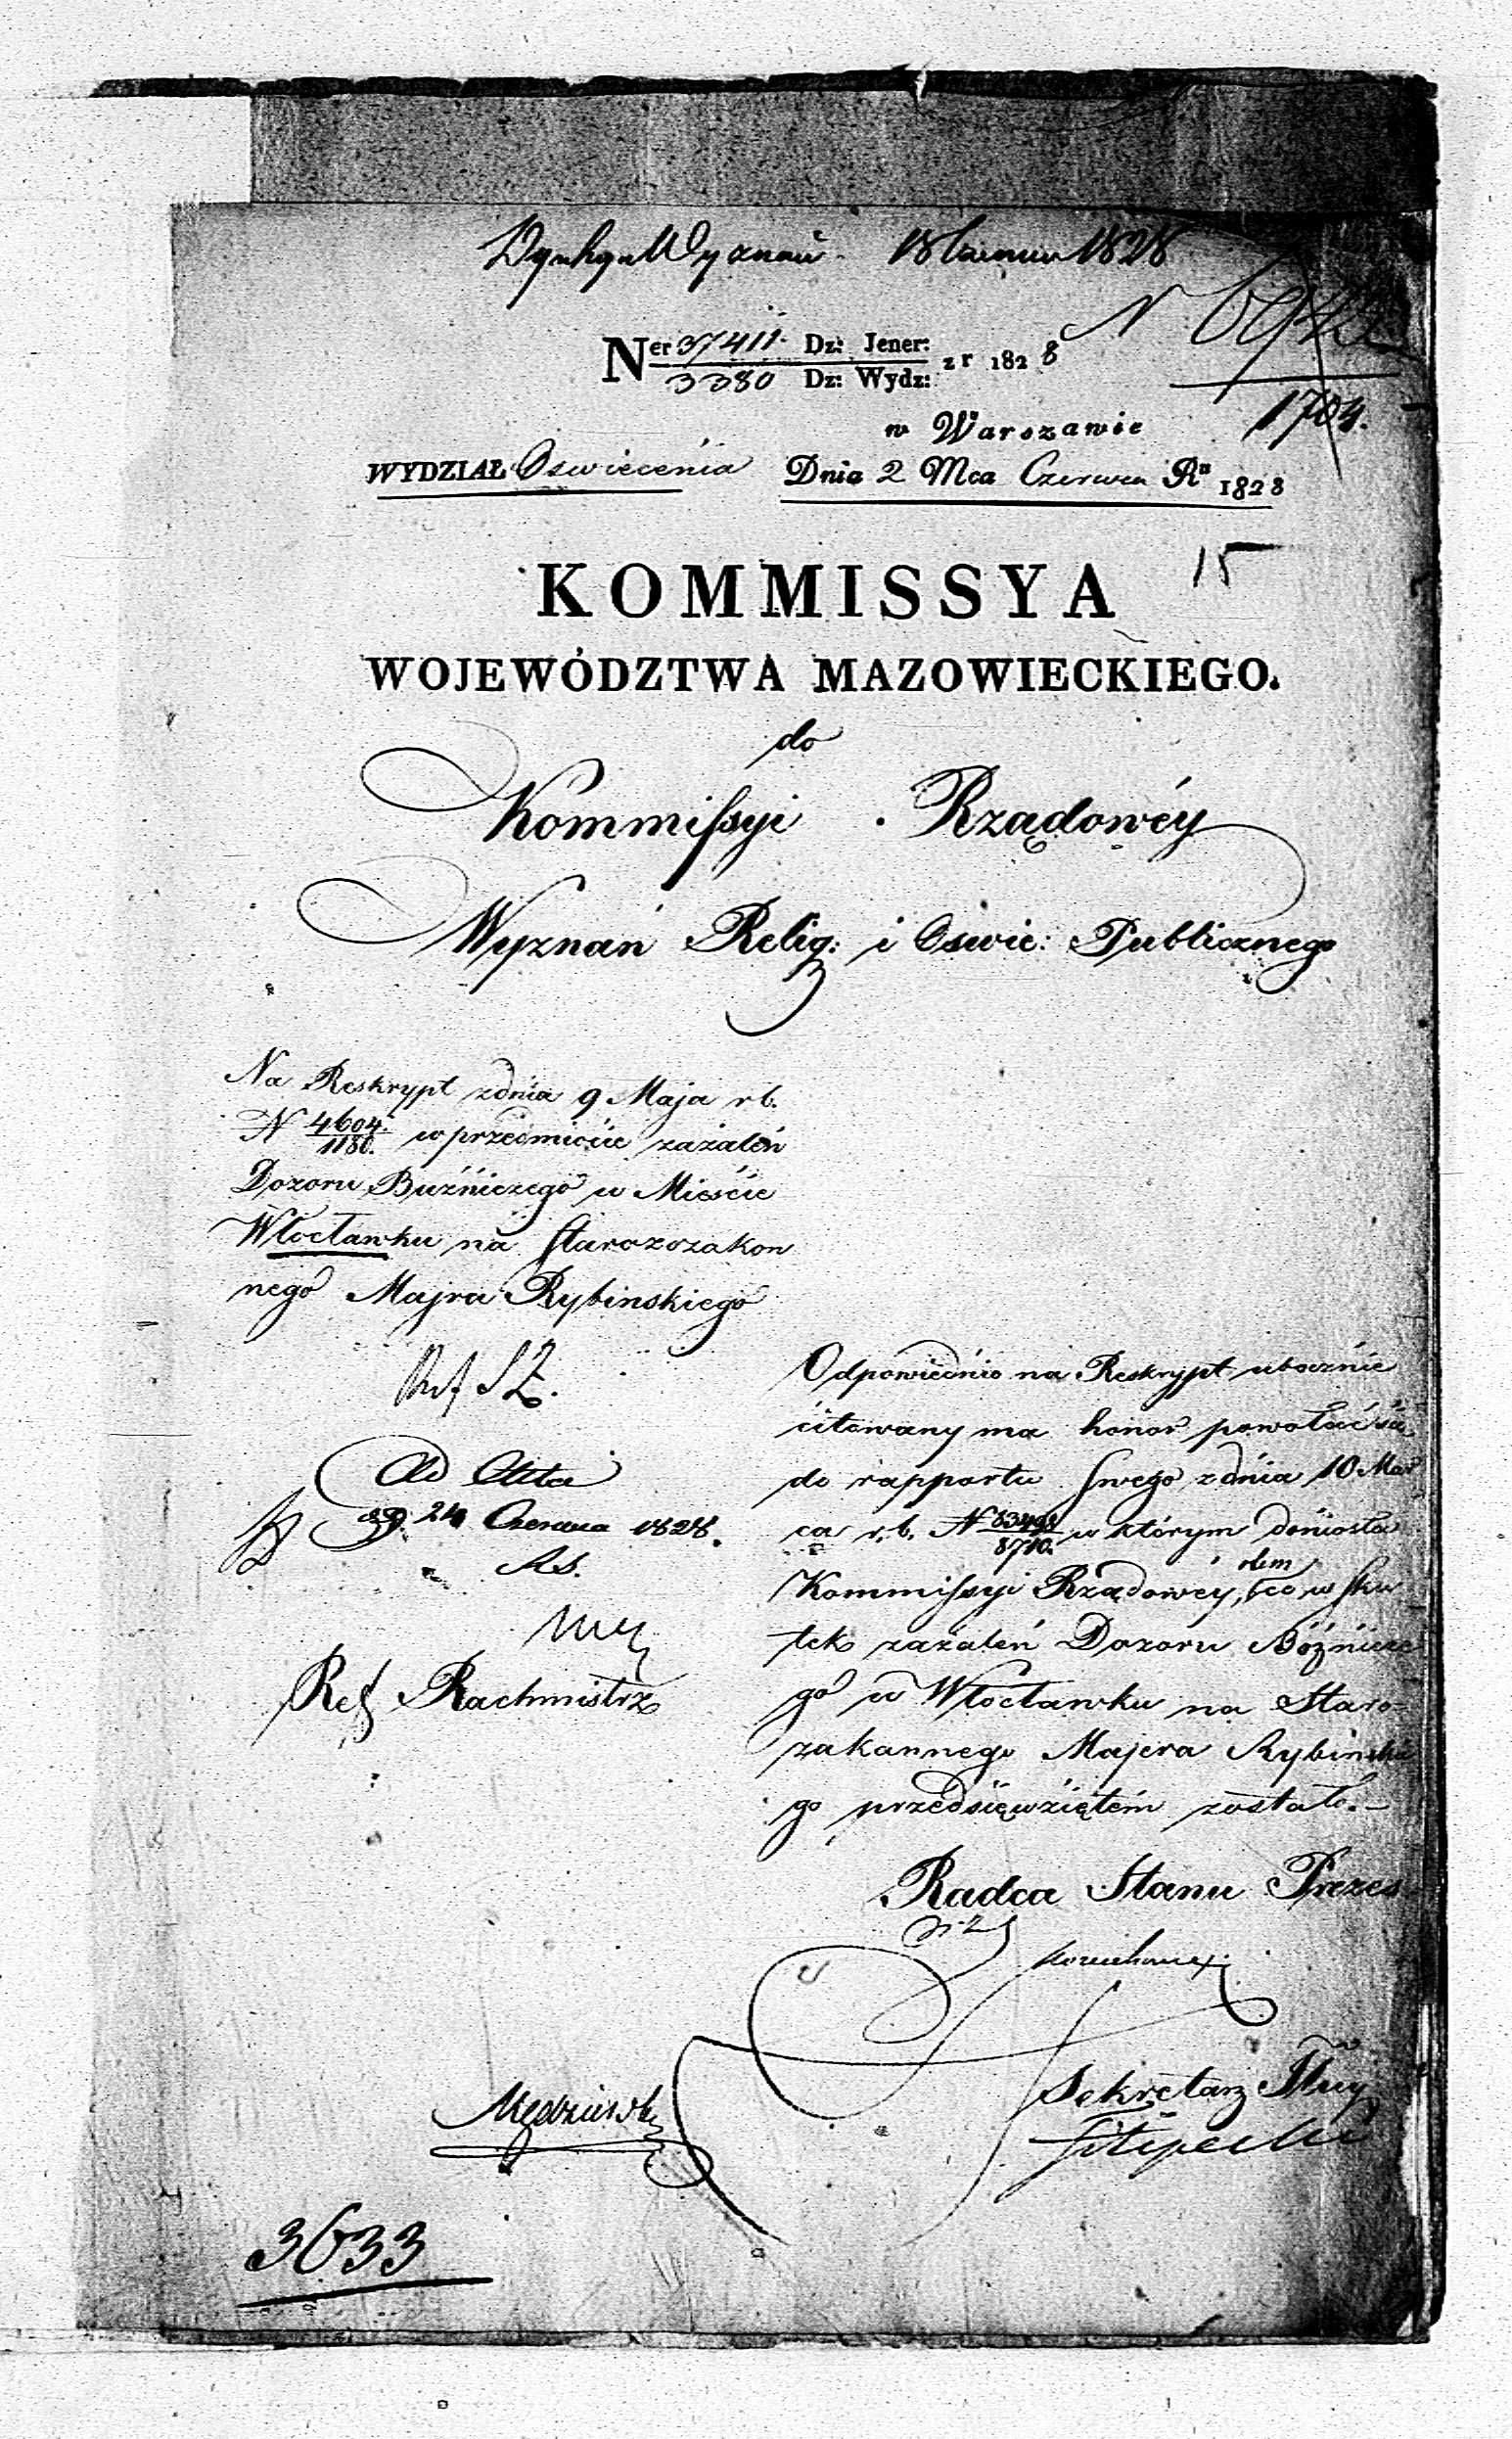 Wyznań 18 1828
N
1704.
Ner 37411. Dz: Jener:
3380 Dz: Wydz: z r 1828
w Warszawie
WYDZIAŁ Oswiecenia Dnia 2 Mca Czerwca Ru 1828
15
KOMMISSYA
WOJEWÓDZTWA MAZOWIECKIEGO.
do
Kommissyi Rządowéy
Wyznań Relig: i Oswie: Publicznego
Na Reskrypt z dnia 9 Maja r b.
N 4604/1180. w przedmiocie zażaleń
Dozoru Buźniczego w Mieście
Włocławku na Starozozakon
nego Majra Rybinskiego
Ref SŻ.
Ad Acta
24 Czerwca 1828.
Ref Rachmistrz
Odpowiednio na Reskrypt ubocznie
citowany ma honor powołać się
do rapportu swego z dnia 10 Mar
ca r. b. N 83498/8710. w którym doniosła
Kommissyi Rządowéy, co w sku
tek zażaleń Dozoru Bóźnicze
go w Włocławku na Staro-
zakannego Majera Rybinskie
go przedsięwziętém zostało.-
Radca Stanu Prezes
Sekretarz Jlny
Filipecki
3633